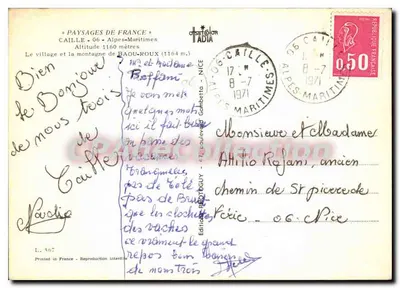 « PAYSAGES DE FRANCE »
CAILLE - 06 - Alpes-Maritimes
Altitude 1160 mètres
Le village et la montagne de BAOU-ROUX (1164 m.)
Bien
le Bonjour
de nous trois
de
Caille
Nadia
Mr et Madame
Raffani
Je vous mets
quelques mots
ici il fait Beau
vacances
Tranquilles
pas de Télé
pas de Bruit
que les cloches
des vaches
vraiment le grand
repos
de nous trois
NICE
06-CAILLE
17 H
8-7
1971
ALPES MARITIMES
06-CAILLE
8-7
1971
ALPES MARITIMES
RÉPUBLIQUE FRANÇAISE
0,50
Monsieur et Madame
Attilio Rajani, ancien
chemin de St pierre de
Féric - 06 Nice
Printed in France - Reproduction interdite